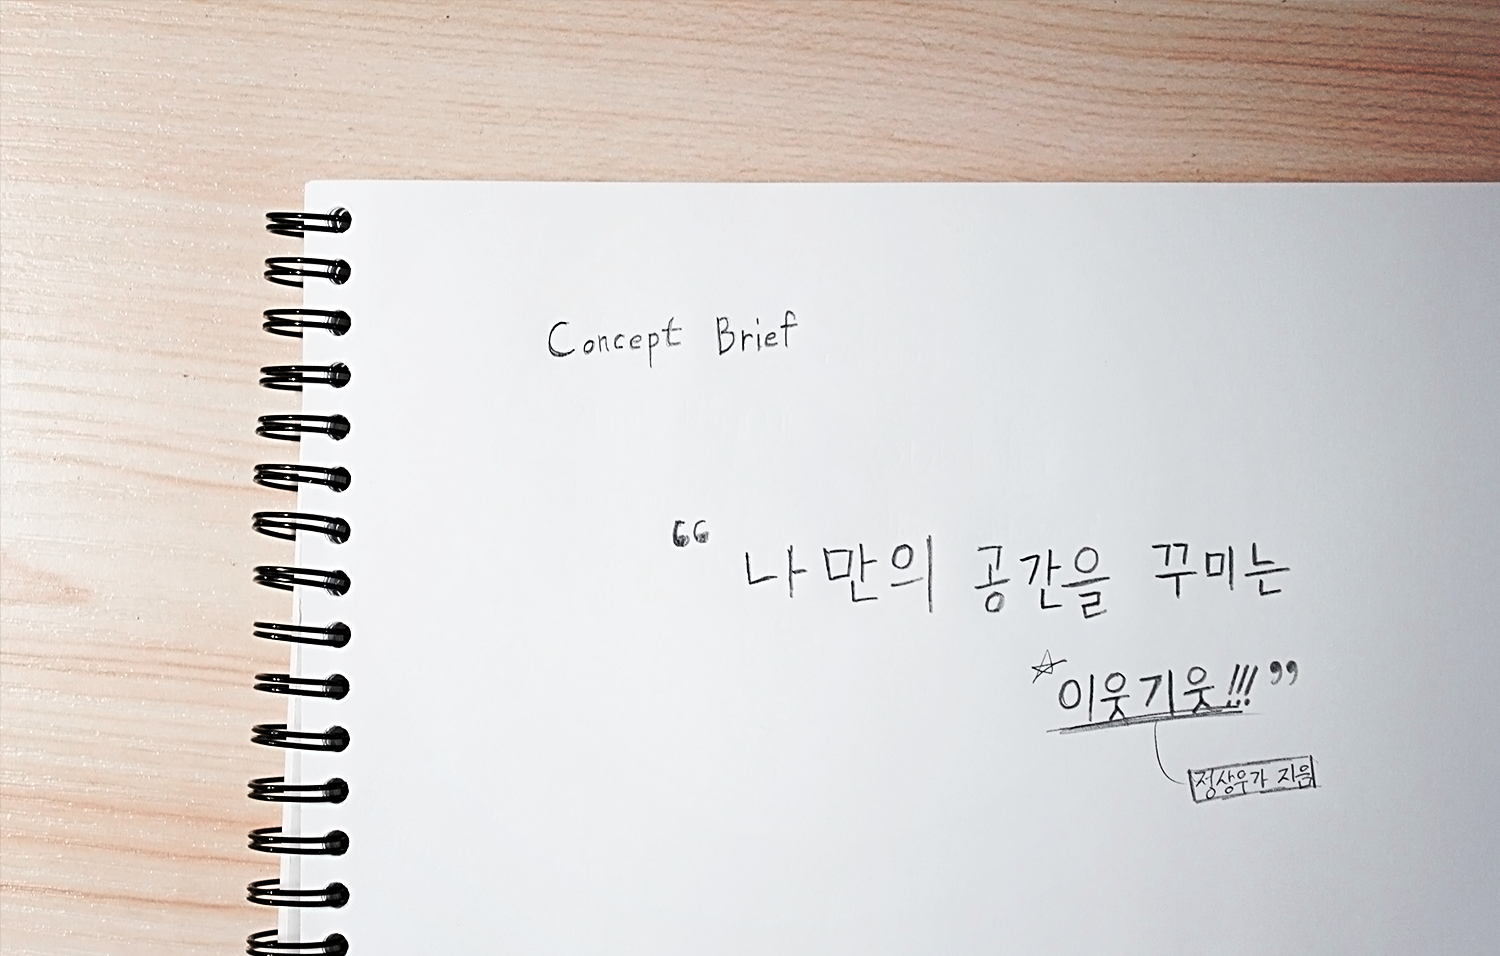 Concept Brief
“ 나만의 공간을 꾸미는
☆이웃기웃!!! ”
정상우가 지음